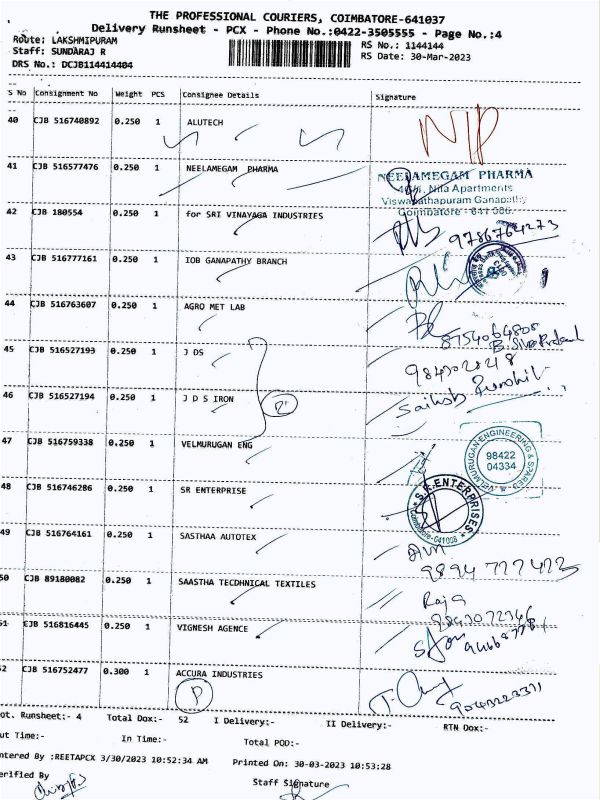 THE PROFESSIONAL COURIERS, COIMBATORE-641037
Delivery Runsheet - PCX - Phone No.:0422-3505555 - Page No.:4
Route: LAKSHMIPURAM RS No.: 1144144
Staff: SUNDARAJ R RS Date: 30-Mar-2023
DRS No.: DCJB114414404
S No Consignment No Weight PCS Consignee Details Signature
40 CJB 516740892 0.250 1 ALUTECH
41 CJB 516577476 0.250 1 NEELAMEGAM PHARMA
NEELAMEGAM PHARMA
Nila Apartments
Viswanathapuram Ganapathy
Coimbatore - 641 006.
42 CJB 180554 0.250 1 for SRI VINAYAGA INDUSTRIES
9786764273
43 CJB 516777161 0.250 1 IOB GANAPATHY BRANCH
44 CJB 516763607 0.250 1 AGRO MET LAB
8754064808
45 CJB 516527193 0.250 1 J DS
46 CJB 516527194 0.250 1 J D S IRON
47 CJB 516759338 0.250 1 VELMURUGAN ENG
VELMURUGAN ENGINEERING & SPARES
98422
04334
48 CJB 516746286 0.250 1 SR ENTERPRISE
S.R.ENTERPRISES
Coimbatore-641006
49 CJB 516764161 0.250 1 SASTHAA AUTOTEX
9894 777423
50 CJB 89180082 0.250 1 SAASTHA TECDHNICAL TEXTILES
Raja
51 CJB 516816445 0.250 1 VIGNESH AGENCE
52 CJB 516752477 0.300 1 ACCURA INDUSTRIES
P
ot. Runsheet:- 4 Total Dox:- 52 I Delivery:- II Delivery:- RTN Dox:-
ut Time:- In Time:- Total POD:-
ntered By :REETAPCX 3/30/2023 10:52:34 AM Printed On: 30-03-2023 10:53:28
erified By Staff Signature